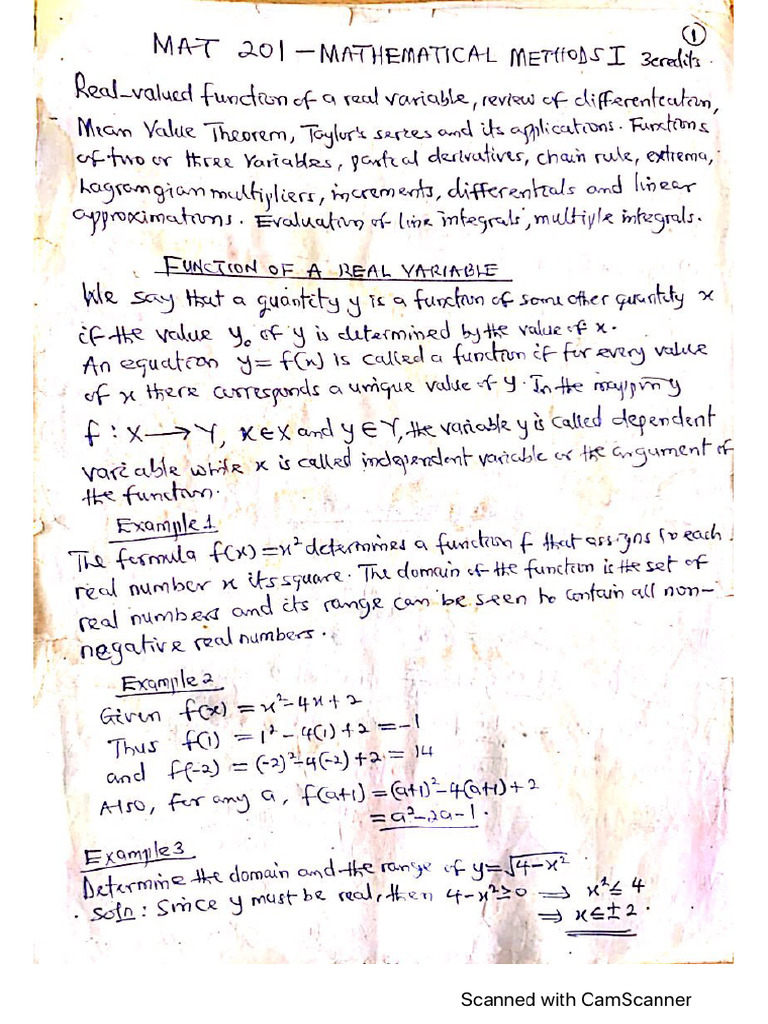 1
MAT 201 – MATHEMATICAL METHODS I 3credits.
Real-valued function of a real variable, review of differentiation,
Mean Value Theorem, Taylor's series and its applications. Functions
of two or three variables, partial derivatives, chain rule, extrema,
Lagrangian multipliers, increments, differentials and linear
approximations. Evaluation of line integrals, multiple integrals.
FUNCTION OF A REAL VARIABLE
We say that a quantity y is a function of some other quantity x
if the value y₀ of y is determined by the value of x.
An equation y = f(x) is called a function if for every value
of x there corresponds a unique value of y. In the mapping
f : X → Y, x ∈ X and y ∈ Y, the variable y is called dependent
variable while x is called independent variable or the argument of
the function.
Example 1
The formula f(x) = x² determines a function f that assigns to each
real number x its square. The domain of the function is the set of
real numbers and its range can be seen to contain all non-
negative real numbers.
Example 2
Given f(x) = x² – 4x + 2
Thus f(1) = 1² – 4(1) + 2 = –1
and f(-2) = (-2)² – 4(-2) + 2 = 14
Also, for any a, f(a+1) = (a+1)² – 4(a+1) + 2
= a² – 2a – 1.
Example 3
Determine the domain and the range of y = √4 – x²
Soln : Since y must be real, then 4 – x² ≥ 0 ⇒ x² ≤ 4
⇒ x ≤ ± 2.
Scanned with CamScanner